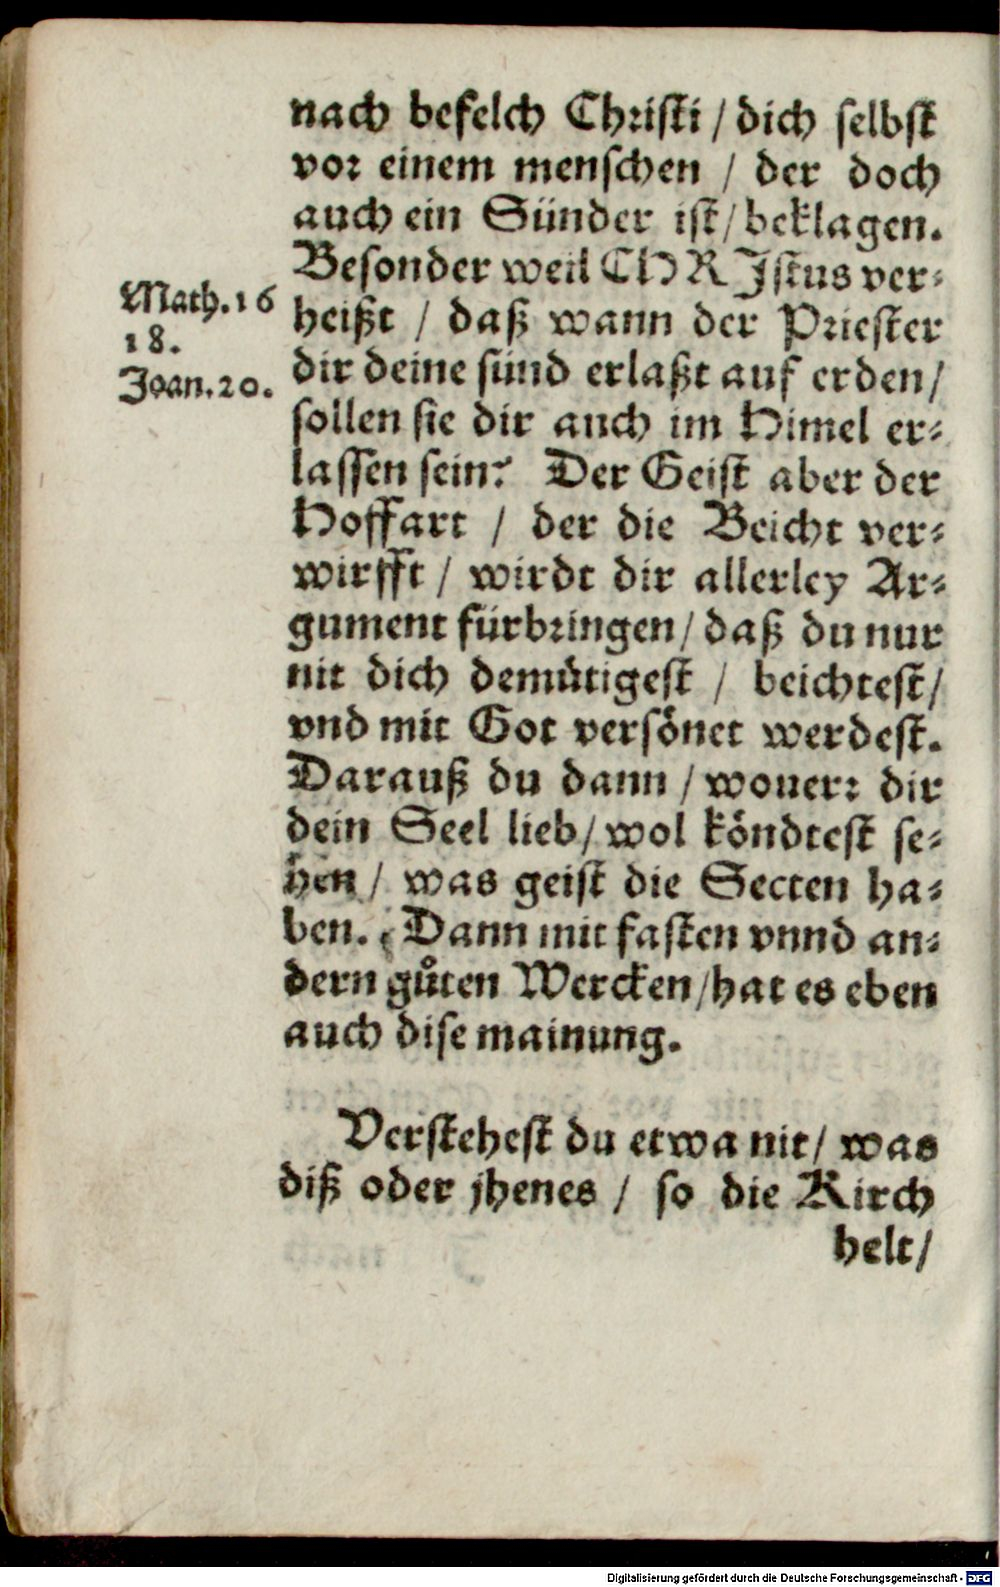 nach befelch Christi / dich selbst
vor einem menschen / der doch
auch ein Sünder ist / beklagen.
Besonder weil CHRJstus ver⸗
Math. 16
18.
Joan. 20.
heißt / daß wann der Priester
dir deine sünd erlaßt auf erden /
sollen sie dir auch im Himel er⸗
lassen sein? Der Geist aber der
Hoffart / der die Beicht ver⸗
wirfft / wirdt dir allerley Ar⸗
gument fürbringen / daß du nur
nit dich demütigest / beichtest /
vnd mit Got versönet werdest.
Darauß du dann / wouerr dir
dein Seel lieb / wol köndtest se⸗
hen / was geist die Secten ha⸗
ben. Dann mit fasten vnnd an⸗
dern gůten Wercken / hat es eben
auch dise mainung.
Verstehest du etwa nit / was
diß oder jhenes / so die Kirch
helt /
Digitalisierung gefördert durch die Deutsche Forschungsgemeinschaft - DFG